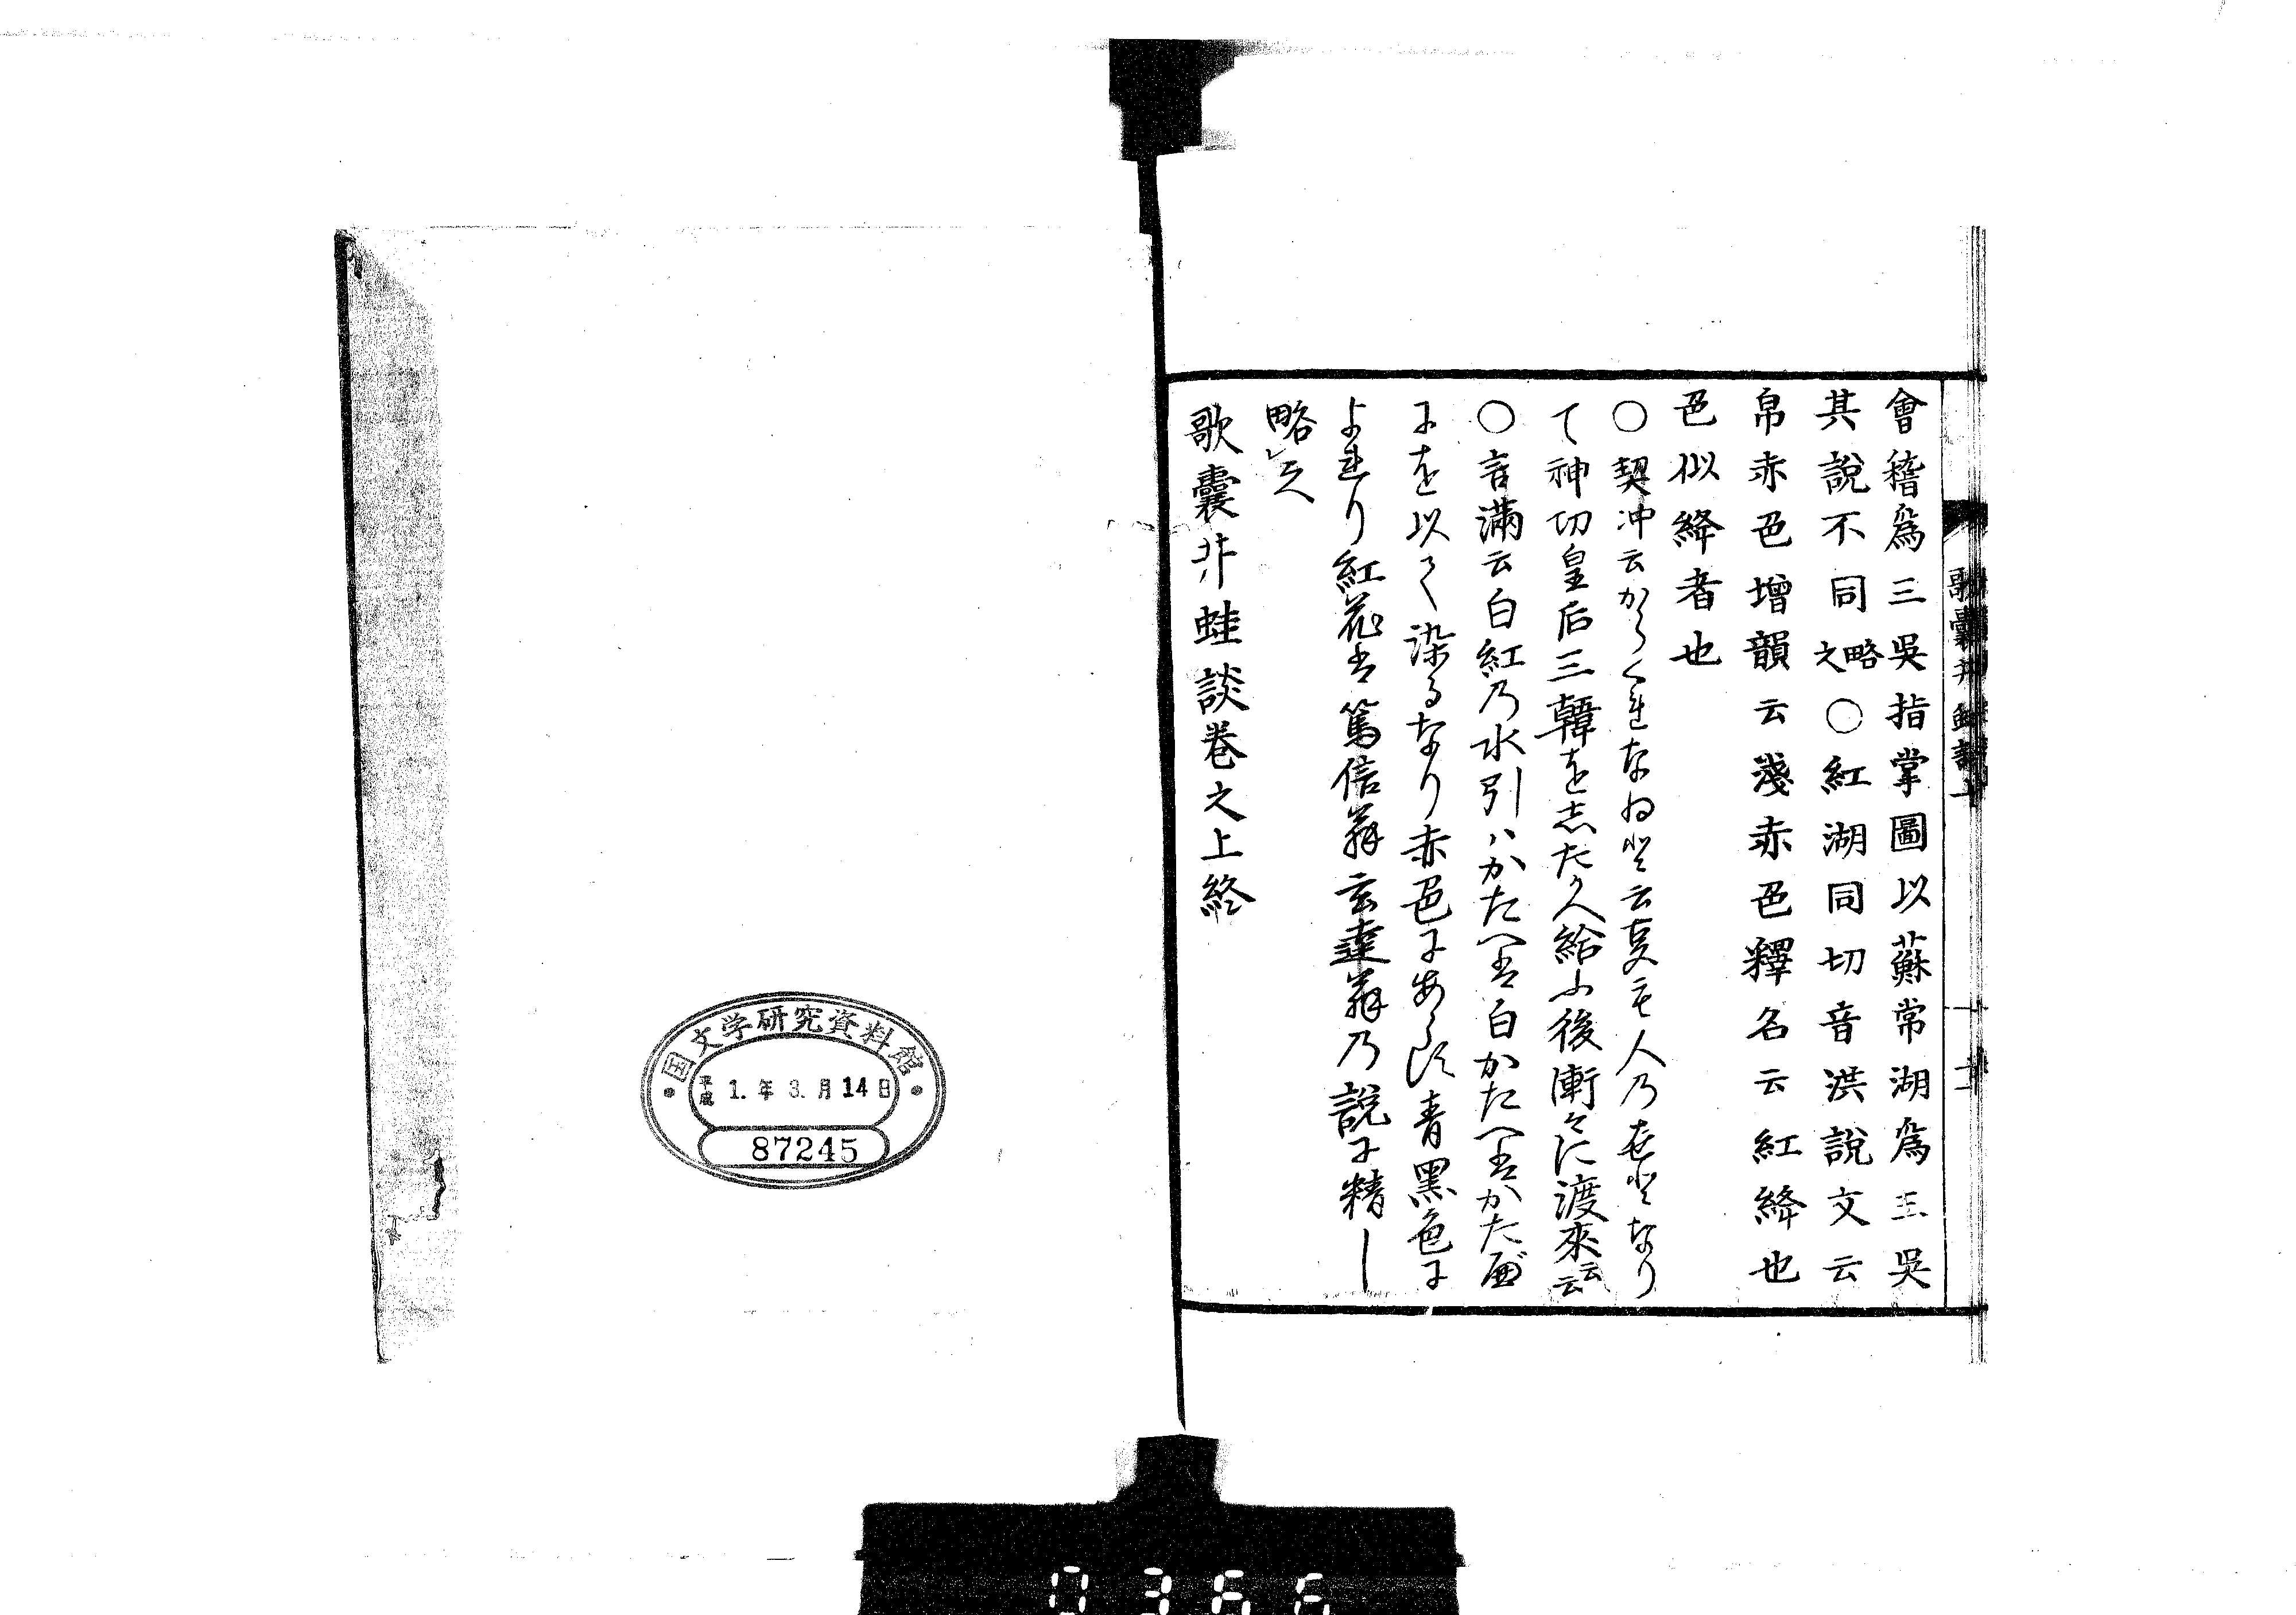 會稽爲三吳指掌圖以蘇常湖爲三吳
其說不同之略○紅湖同切音洪說文云
帛赤色增韻云淺赤色釋名云紅絳也
色似絳者也
○契冲云からくれなゐと云哀も人乃在となり
て神切皇后三韓を志たかへ給ふ後漸々に渡來云云
○言滿云白紅乃水引ハかたへは白かたへはかた
にを以て染るなり赤色にあらす青黑色に
よれり紅花は篤信翁玄達翁乃說に精し
略之
歌囊井蛙談卷之上終
歌囊井蛙談上
国文学研究資料館
平成1.年3.月14日
87245
0366